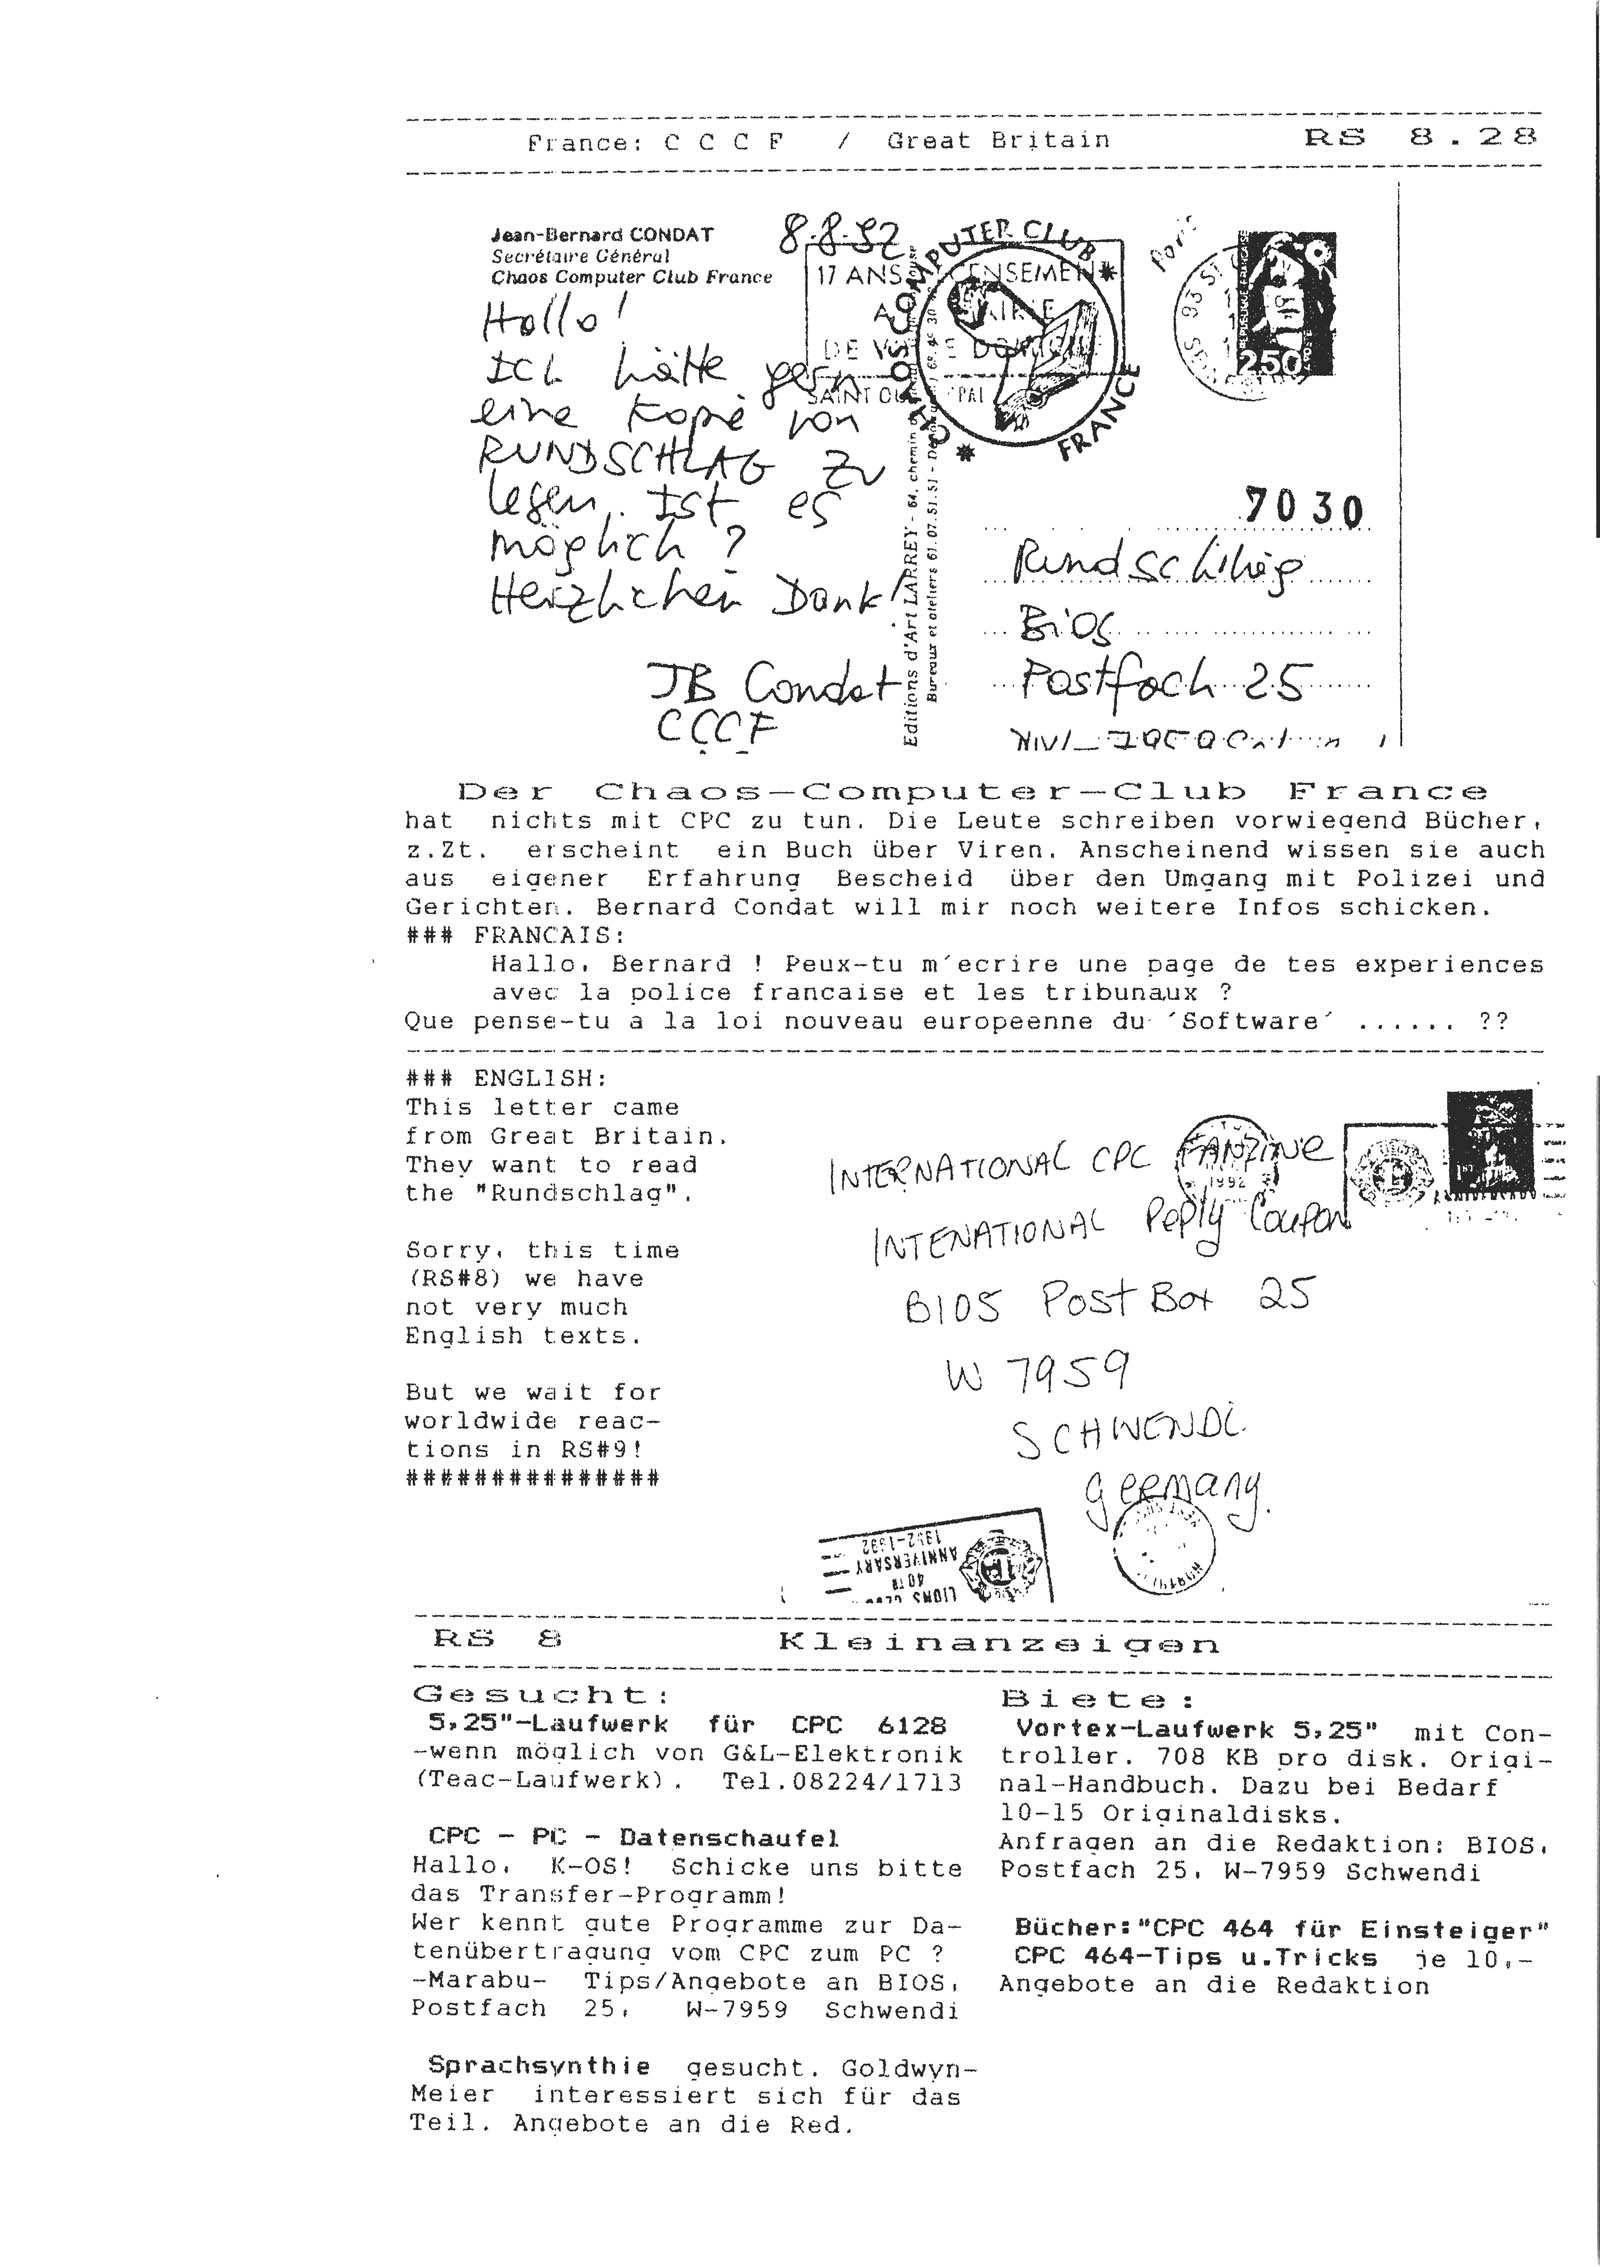 France: C C C F / Great Britain RS 8.28
Jean-Bernard CONDAT
Secrétaire Général
Chaos Computer Club France
8.8.92
Hallo!
Ich hätte gern
eine Kopie von
RUNDSCHLAG zu
lesen. Ist es
möglich?
Herzlichen Dank!
JB Condat
CCCF
17 ANS
DE
SAINT
CHAOS COMPUTER CLUB
FRANCE
Editions d'Art LARREY - 64, chemin
Bureaux et ateliers 61.07.51.51 -
2,50
7030
Rundschlag
Bios
Postfach 25
Der Chaos-Computer-Club France
hat nichts mit CPC zu tun. Die Leute schreiben vorwiegend Bücher,
z.Zt. erscheint ein Buch über Viren. Anscheinend wissen sie auch
aus eigener Erfahrung Bescheid über den Umgang mit Polizei und
Gerichten. Bernard Condat will mir noch weitere Infos schicken.
### FRANCAIS:
Hallo, Bernard ! Peux-tu m´ecrire une page de tes experiences
avec la police francaise et les tribunaux ?
Que pense-tu a la loi nouveau europeenne du ´Software´ ...... ??
### ENGLISH:
This letter came
from Great Britain.
They want to read
the "Rundschlag".
Sorry, this time
(RS#8) we have
not very much
English texts.
But we wait for
worldwide reac-
tions in RS#9!
###############
INTERNATIONAL CPC FANZINE
INTENATIONAL Reply Coupon
BIOS Post Box 25
W 7959
SCHWENDI
Germany.
1992
1952-1992
ANNIVERSARY
40TH
LIONS
RS 8 Kleinanzeigen
Gesucht:
5,25"-Laufwerk für CPC 6128
-wenn möglich von G&L-Elektronik
(Teac-Laufwerk). Tel.08224/1713
CPC - PC - Datenschaufel
Hallo, K-OS! Schicke uns bitte
das Transfer-Programm!
Wer kennt gute Programme zur Da-
tenübertragung vom CPC zum PC ?
-Marabu- Tips/Angebote an BIOS,
Postfach 25, W-7959 Schwendi
Sprachsynthie gesucht. Goldwyn-
Meier interessiert sich für das
Teil. Angebote an die Red.
Biete:
Vortex-Laufwerk 5,25" mit Con-
troller. 708 KB pro disk. Origi-
nal-Handbuch. Dazu bei Bedarf
10-15 Originaldisks.
Anfragen an die Redaktion: BIOS,
Postfach 25, W-7959 Schwendi
Bücher:"CPC 464 für Einsteiger"
CPC 464-Tips u.Tricks je 10,-
Angebote an die Redaktion